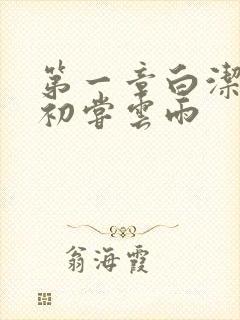 第一章白潔
初嘗雲雨
翁海霞